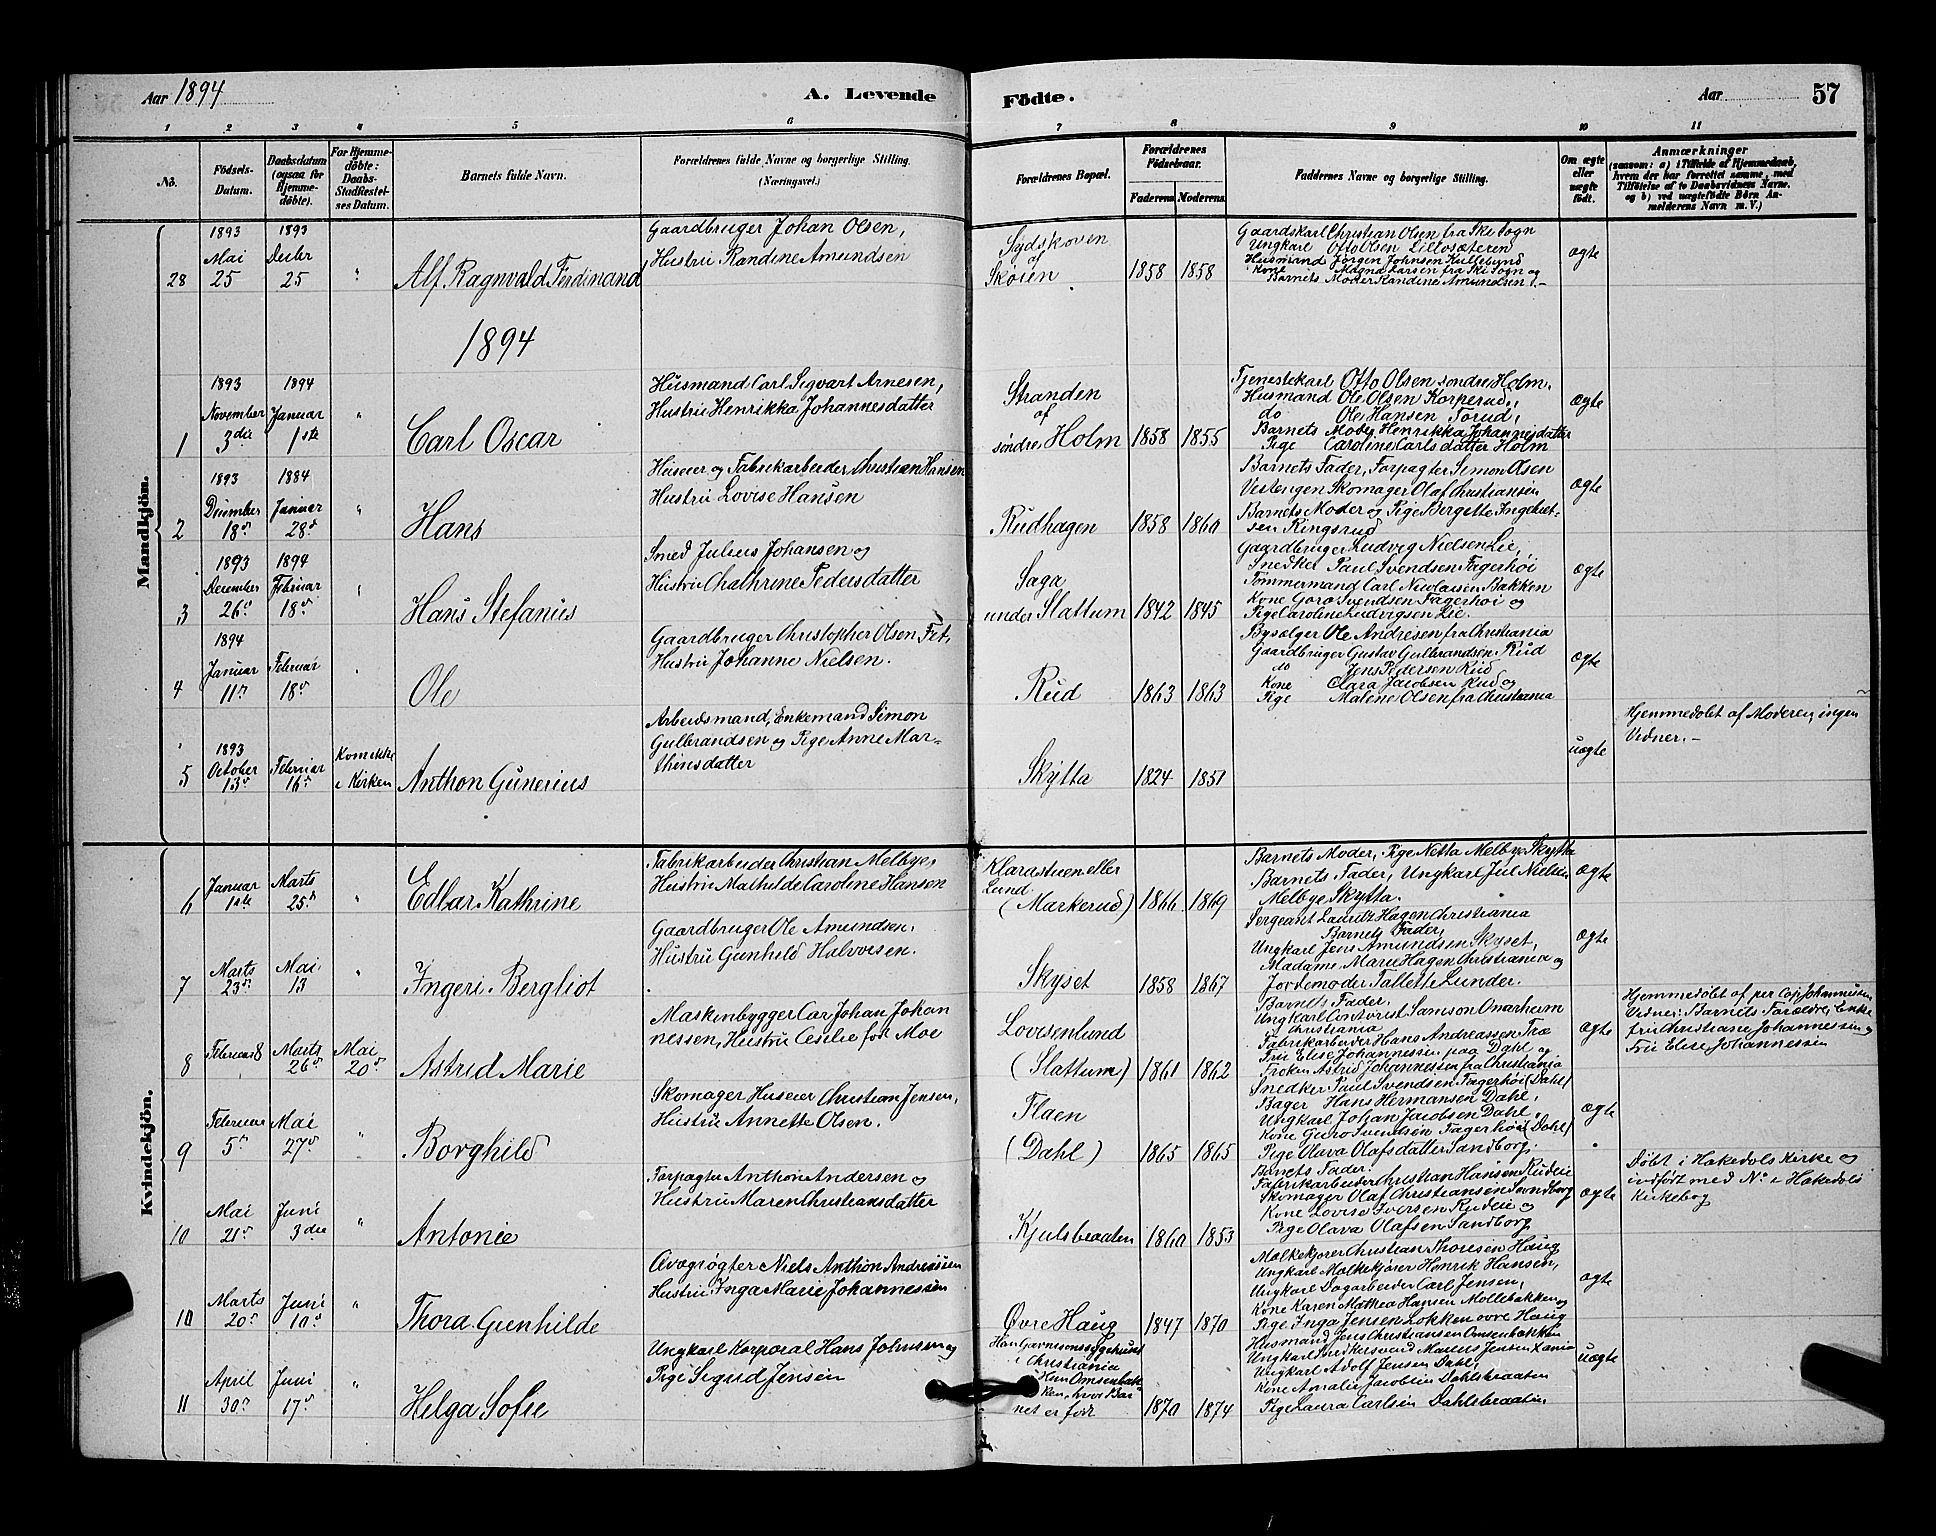 Aar 1894
A. Levende Födte.
Aar
57
1 2 3 4 5 6 7 8 9 10 11
No.
Födsels-Datum.
Daabsdatum (ogsaa for Hjemmedöbte).
For Hjemmedöbte: Daabs-Stadfæstelses Datum.
Barnets fulde Navn.
Forældrenes fulde Navne og borgerlige Stilling.
(Næringsvei.)
Forældrenes Bopæl.
Forældrenes Födselsaar.
Faderens. Moderens.
Faddernes Navne og borgerlige Stilling.
Om ægte eller uægte födt.
Anmærkninger
(saasom: a) i Tilfælde af Hjemmedaab, hvem der har forrettet samme, med Tilföielse af to Daabsvidners Navne, og b) ved uægtefödte Børn Anmelderens Navn m. V.)
Mandkjön.
28
1893 Mai 25
1893 Decbr 25
"
Alf Ragnvald Ferdinand
Gaardbruger Johan Olsen,
Hustru Randine Amundsen
Sydskoven
af
Skøien
1858 1858
Gaardskarl Christian Olsen fra Ski Sogn
Ungkarl Otto Olsen Lillosæteren
Husmand Jørgen Johnsen Kullebund
Kone Larsen fra Ski Sogn og
Barnets Moder Randine Amundsen
ægte
1894
1
1893 November 3die
1894 Januar 1ste
"
Carl Oscar
Husmand Carl Sigvart Arnesen,
Hustru Henrikka Johannesdatter
Stranden
af
søndre Holm
1858 1855
Tjenestekarl Otto Olsen søndre Holm.
Husmand Ole Olsen Korperud,
do Ole Hansen Torud,
Barnets Moder Henrikka Johannesdatter
Pige Caroline Carlsdatter Holm
ægte
2
1893 December 18de
1884 Januar 28d
"
Hans
Huseier og Fabrikarbeider Christian Hansen
Hustru Lovise Hansen
Rudhagen
1858 1860
Barnets Fader, Forpagter Simon Olsen
Vestengen Skomager Olaf Christiansen
Barnets Moder og Pige Bergitte Ingebret-
sen Ringsrud
ægte
3
1893 December 26d
1894 Februar 18d
"
Hans Stefanus
Smed Julius Johansen og
Hustru Chathrine Pedersdatter
Saga
under Slattum
1842 1845
Gaardbruger Ludvig Nielsen Lie,
Snedker Paul Svendsen Fagerhøi
Tømmermand Carl Nicolaisen Bakken
Kone Goro Svendsen Fagerhøi og
Pige Caroline Ludvigsen Lie.
ægte
4
1894 Januar 11d
Februar 18d
"
Ole
Gaardbruger Christopher Olsen Fet,
Hustru Johanne Nielsen.
Rud
1863 1863
Bysælger Ole Andresen fra Christiania
Gaardbruger Gustav Gulbrandsen Rud
do Jens Pedersen Rud
Kone Clara Jacobsen Rud og
Pige Malene Olsen fra Christiania
ægte
5
1893 October 13d
Februar 16d
Kom ikke
i Kirken
Anthon Gunerius
Arbeidsmand, Enkemand Simon
Gulbrandsen og Pige Anne Mar-
thinsdatter
Skytta
1824 1851
uægte
Hjemmedøbt af Moderen, ingen
Vidner.
Kvindekjön.
6
Januar 1ste
Marts 25d
"
Edlar Kathrine
Fabrikarbeider Christian Melbye,
Hustru Mathilde Caroline Hansen
Klarastuen eller
Lund
(Markerud)
1866 1869
Barnets Moder, Pige Netta Melbye Skytta
Barnets Fader, Ungkarl Jul Nielsen
Melbye Skytta.
ægte
7
Marts 23d
Mai 13
"
Ingeri Bergliot
Gaardbruger Ole Amundsen,
Hustru Gunhild Halvorsen.
Skyset
1858 1867
Sergeant Lauritz Hagen Christiania
Barnets Fader,
Ungkarl Jens Amundsen Skyset,
Madame Marie Hagen Christiania og
Jordemoder Tallette Lunder.
ægte
8
Februar 8
Marts 26d
Mai 20d
Astrid Marie
Maskinbygger Carl Johan Johan
nessen, Hustru Cesilie født Moe
Lovisenlund
(Slattum)
1861 1862
Barnets Fader.
Ungkarl Contorist Samson Omarheim
Christiania
Fabrikarbeider Hans Andreassen Træ
Frue Elise Johannessen paa Dahl og
Frøken Astrid Johannessen fra Christiania
ægte
Hjemmedøbt af per Cap. Johannessen
Vidner: Barnets Forældre, Enke
fru Christiane Johannessen og
Frue Elise Johannessen
9
Februar 5d
Mai 27d
"
Borghild
Skomager Huseier Christian Jensen,
Hustru Annette Olsen.
Flaen
(Dahl)
1865 1865
Snedker Paul Svendsen Fagerhøi (Dahl)
Bager Hans Hermansen Dahl,
Ungkarl Johan Jacobsen Dahl,
Kone Guro Svendsen Fagerhøi (Dahl)
Pige Olava Olafsdatter Sandborg.
ægte
10
Mai 21d
Juni 3die
"
Antonie
Forpagter Anthon Andersen og
Hustru Maren Christiansdatter
Kjulsbraaten
1860 1853
Barnets Fader.
Fabrikarbeider Christian Hansen Rudeie
Skomager Olaf Christiansen Sandborg
Kone Lovise Iversen Rudeie og
Pige Olava Olafsen Sandborg
ægte
Døbt i Hakedals Kirke og
indført med No i Hakedals
Kirkebog
10
Marts 20d
Juni 10d
"
Thora Gunhilde
Niels Anthon Andreasen
Hustru Inga Marie Johannessen
Øvre Haug
1847 1870
Mælkekjører Christian Thoresen Haug
Ungkarl Mælkekjører Henrik Hansen,
Ungkarl Dagarbeider Carl Jensen,
Kone Karen Mathea Hansen Møllebakken og
Pige Inga Jensen Løkken øvre Haug
ægte
11
April 30d
Juni 17d
"
Helga Sofie
Ungkarl Korporal Hans Johnsen og
Pige Sigrid Jensen
Han Garnisonssygehuset
i Christiania
Hun Omsenbak-
ken, hvor Bar
net er født
1870 1874
Husmand Jens Christiansen Omsenbakken
Ungkarl Marius Jensen Xania
Ungkarl Adolf Jensen Dahl,
Kone Amalie Jacobsen Dahlsbraaten
Pige Laura Carlsen Dahlsbraaten
uægte